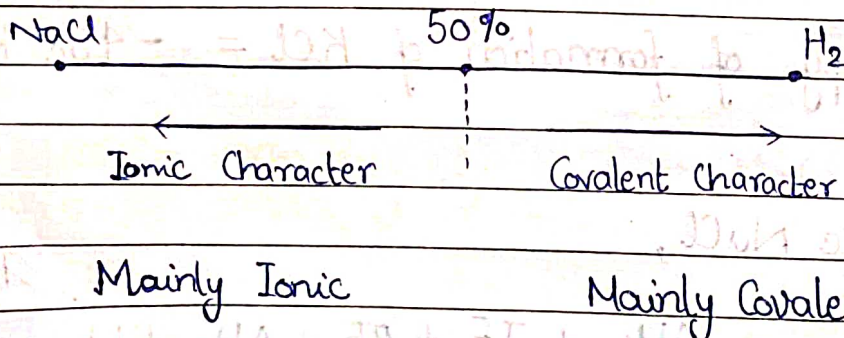 NaCl 50% H₂
Ionic Character Covalent Character
Mainly Ionic Mainly Covale